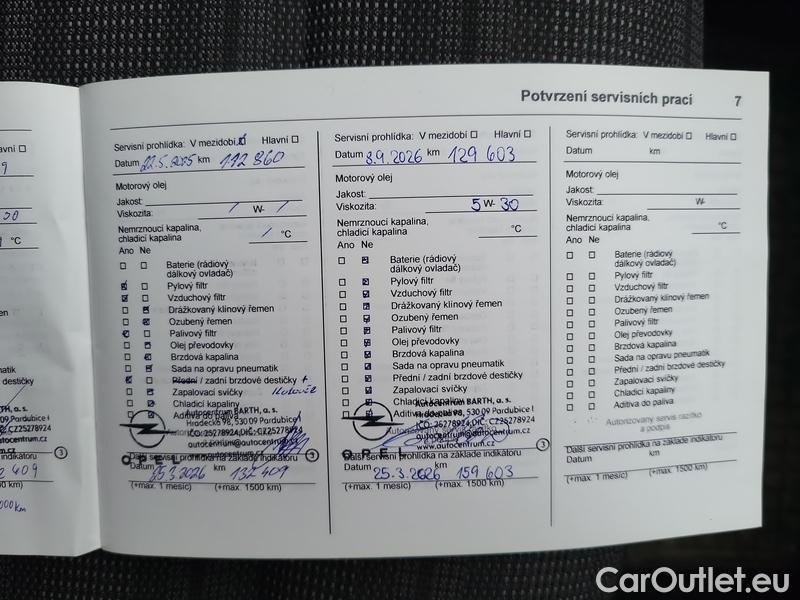 Potvrzení servisních prací 7
Servisní prohlídka: V mezidobí Hlavní
Datum 22.5.2025 km 112 860
Motorový olej
Jakost:
Viskozita: / W- /
Nemrznoucí kapalina,
chladicí kapalina / °C
Ano Ne
Baterie (rádiový
dálkový ovladač)
Pylový filtr
Vzduchový filtr
Drážkovaný klínový řemen
Ozubený řemen
Palivový filtr
Olej převodovky
Brzdová kapalina
Sada na opravu pneumatik
Přední / zadní brzdové destičky +
Zapalovací svíčky
Chladicí kapaliny
Aditiva do paliva
Autocentrum BARTH, a. s.
Hradecká 98, 530 09 Pardubice I
IČO: 25278924, DIČ: CZ25278924
autocentrum.cz
OPEL
Další servisní prohlídka na základě indikátoru
Datum 25.3.2026 km 132 409
(+max. 1 měsíc) (+max. 1500 km)
Servisní prohlídka: V mezidobí Hlavní
Datum 8.9.2026 km 129 603
Motorový olej
Jakost:
Viskozita: 5 W- 30
Nemrznoucí kapalina,
chladicí kapalina °C
Ano Ne
Baterie (rádiový
dálkový ovladač)
Pylový filtr
Vzduchový filtr
Drážkovaný klínový řemen
Ozubený řemen
Palivový filtr
Olej převodovky
Brzdová kapalina
Sada na opravu pneumatik
Přední / zadní brzdové destičky
Zapalovací svíčky
Chladicí kapaliny
Aditiva do paliva
Autocentrum BARTH, a. s.
Hradecká 98, 530 09 Pardubice I
IČO: 25278924, DIČ: CZ25278924
autocentrum@autocentrum.cz
www.autocentrum.cz
OPEL
Další servisní prohlídka na základě indikátoru
Datum 25.3.2026 km 159 603
(+max. 1 měsíc) (+max. 1500 km)
Servisní prohlídka: V mezidobí Hlavní
Datum km
Motorový olej
Jakost:
Viskozita: W-
Nemrznoucí kapalina,
chladicí kapalina °C
Ano Ne
Baterie (rádiový
dálkový ovladač)
Pylový filtr
Vzduchový filtr
Drážkovaný klínový řemen
Ozubený řemen
Palivový filtr
Olej převodovky
Brzdová kapalina
Sada na opravu pneumatik
Přední / zadní brzdové destičky
Zapalovací svíčky
Chladicí kapaliny
Aditiva do paliva
Autorizovaný servis razítko
a podpis
Další servisní prohlídka na základě indikátoru
Datum km
(+max. 1 měsíc) (+max. 1500 km)
CarOutlet.eu